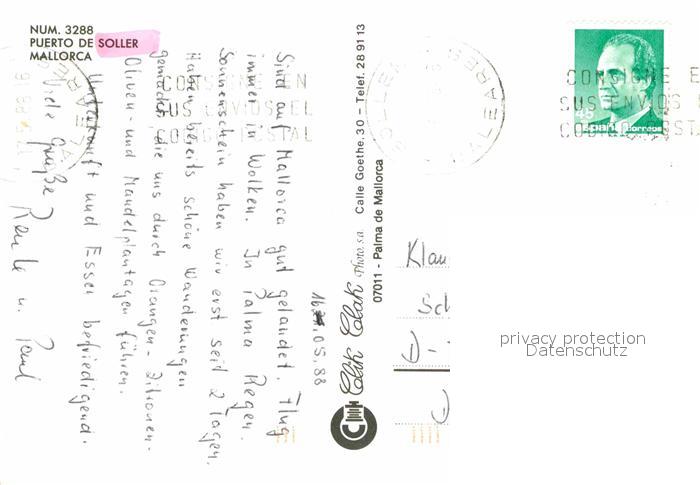 NUM. 3288
PUERTO DE SOLLER
MALLORCA
16.05.88
Sind auf Mallorca gut gelandet. Flug
immer in Wolken. In Palma Regen.
Sonnenschein haben wir erst seit 2 Tagen.
Haben bereits schöne Wanderungen
gemacht, die uns durch Orangen- Zitronen-
Oliven- und Mandelplantagen führen.
Unterkunft und Essen befriedigend.
Viele Grüße
u. Paul
Clik Clak Photo, s.a. Calle Goethe, 30 - Telef. 28 91 13
07011 - Palma de Mallorca
CONSIGNE EN
SUS ENVIOS EL
CODIGO POSTAL
SOLLER
BALEARES
45
España Correos
CONSIGNE E
SUS ENVIOS
CODIGO POSTA
Klau
Sch
D-
privacy protection
Datenschutz